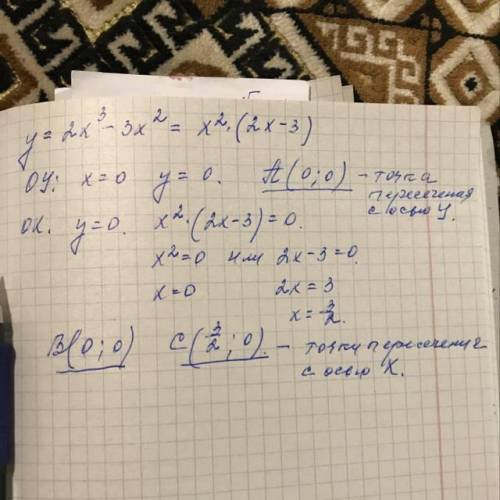 y = 2x³ - 3x² = x²·(2x-3)
ОУ: x=0 y=0. A(0;0) - точка пересечения с осью У.
ОХ. y=0. x²·(2x-3)=0.
x²=0 или 2x-3=0.
x=0 2x=3
x=3/2.
B(0;0) C(3/2;0). - точки пересечения с осью Х.